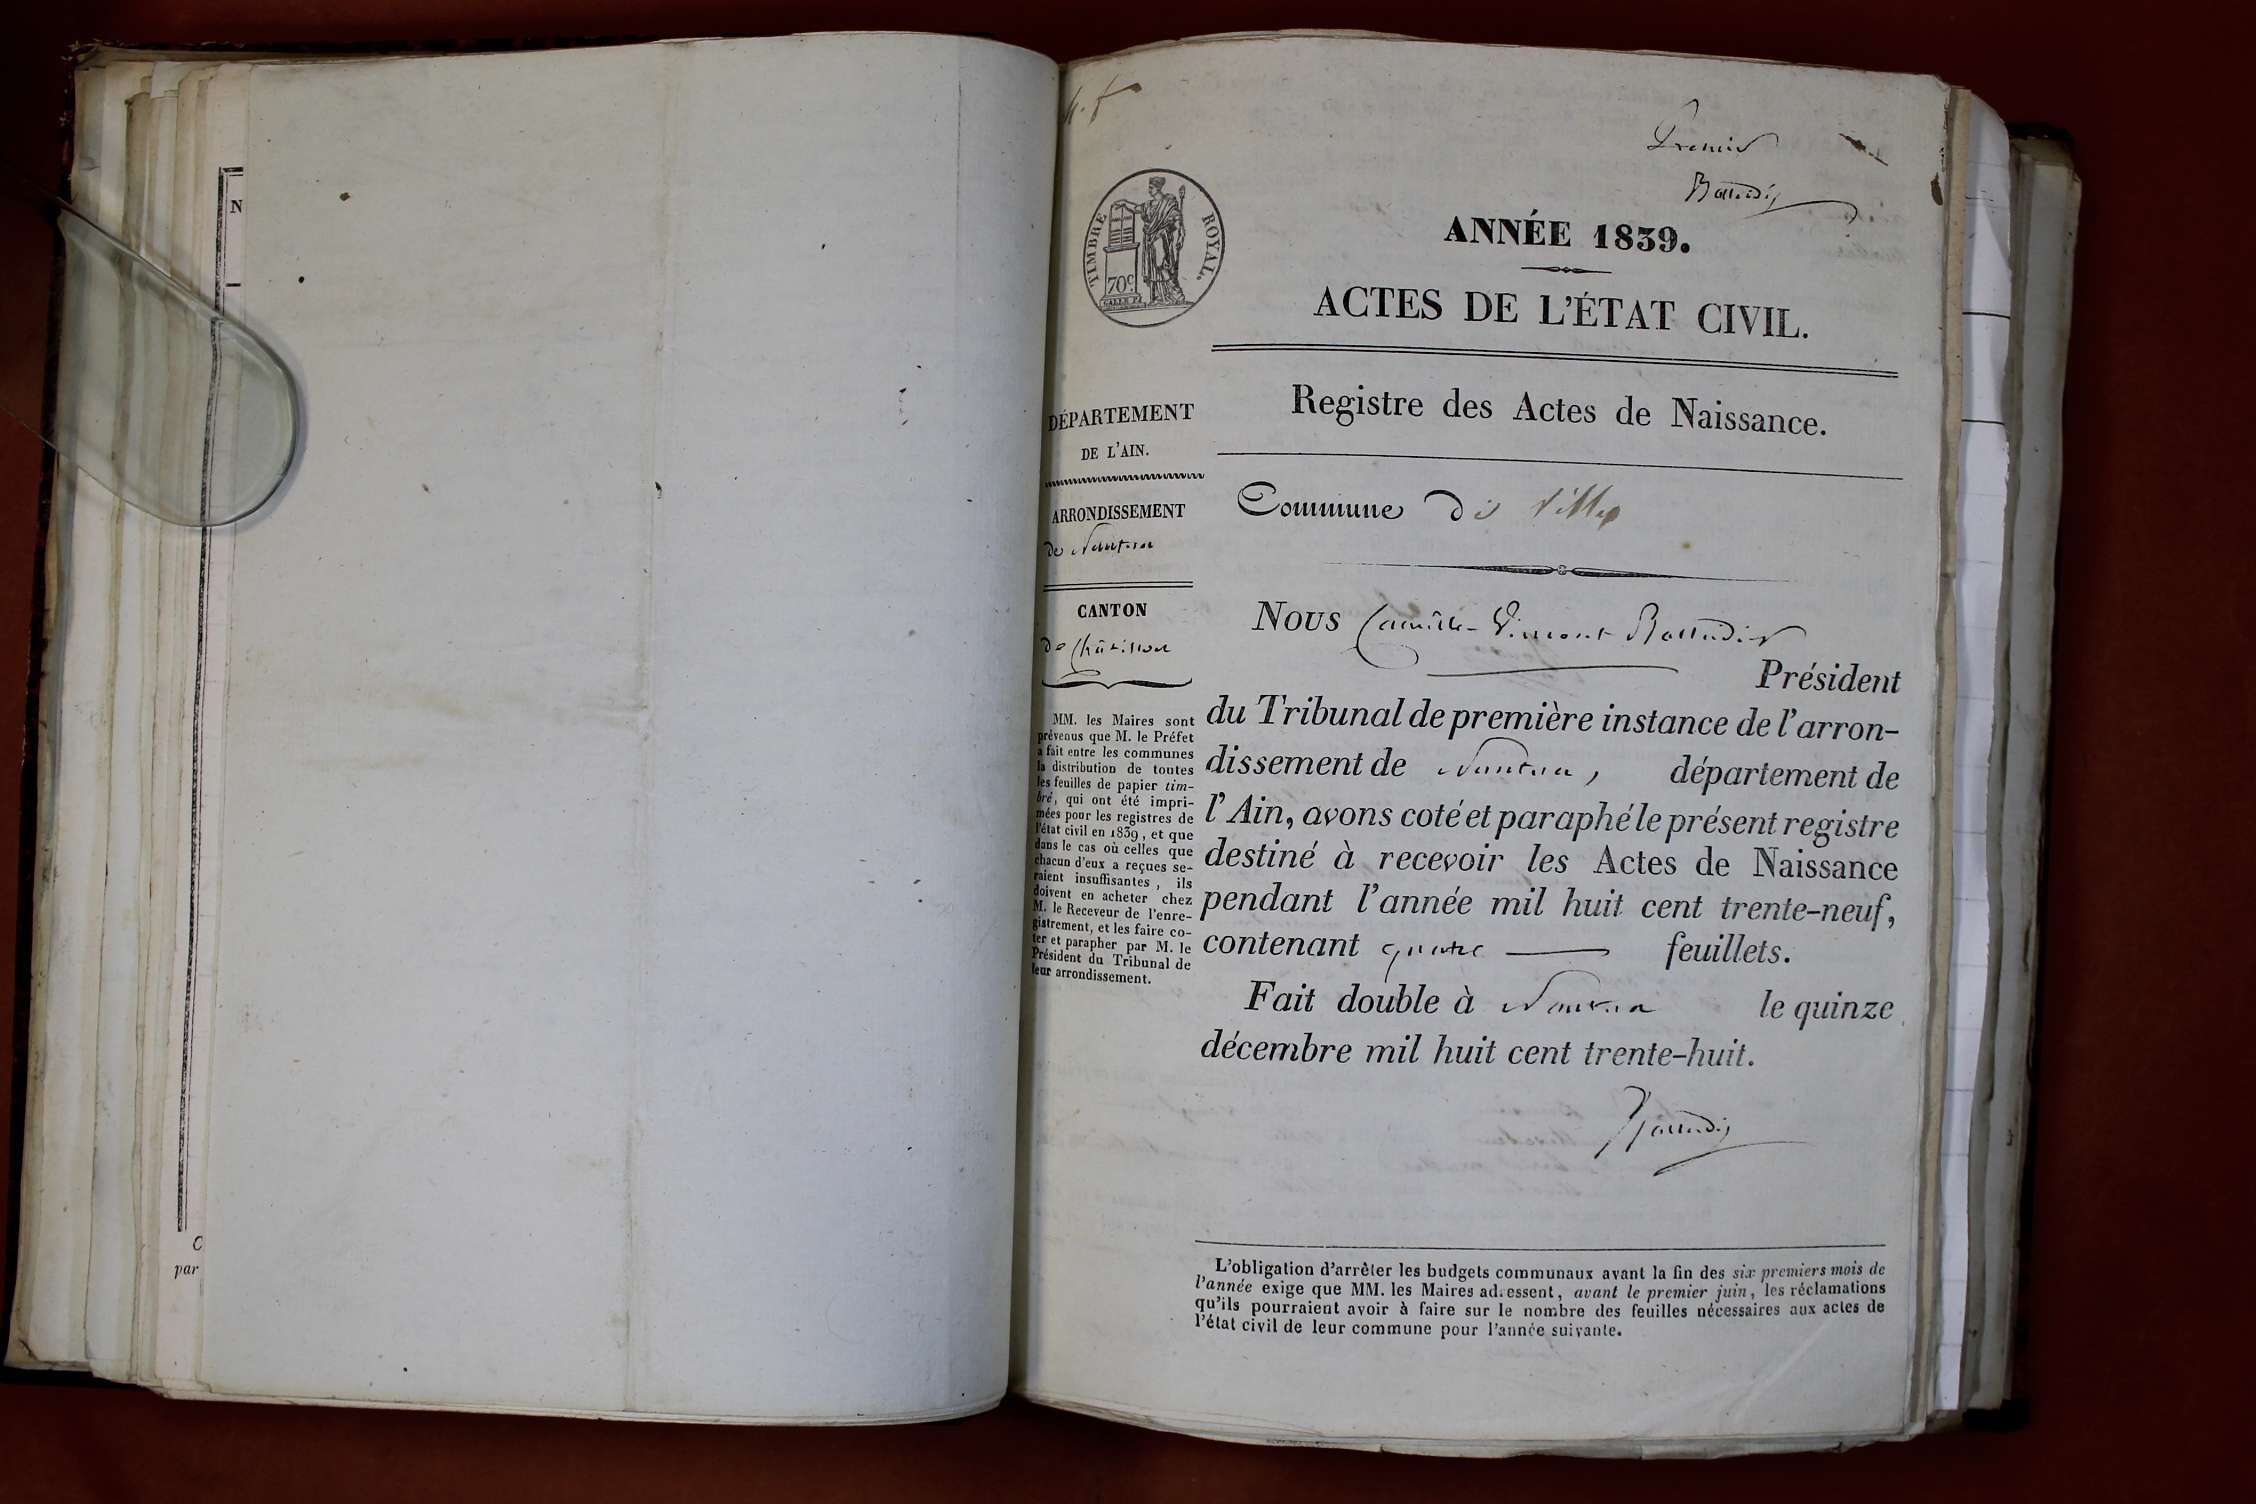 N
C
par
Premier
ANNÉE 1839.
TIMBRE ROYAL.
70c.
ACTES DE L'ÉTAT CIVIL.
Registre des Actes de Naissance.
DÉPARTEMENT
DE L'AIN.
ARRONDISSEMENT
de Nantua
CANTON
de Châtillon
MM. les Maires sont
prévenus que M. le Préfet
a fait entre les communes
la distribution de toutes
les feuilles de papier tim-
bré, qui ont été impri-
mées pour les registres de
l'état civil en 1839, et que
dans le cas où celles que
chacun d'eux a reçues se-
raient insuffisantes, ils
doivent en acheter chez
M. le Receveur de l'enre-
gistrement, et les faire co-
ter et parapher par M. le
Président du Tribunal de
leur arrondissement.
Commune de Villes
Nous Camille Vincent
Président
du Tribunal de première instance de l'arron-
dissement de Nantua, département de
l'Ain, avons coté et paraphé le présent registre
destiné à recevoir les Actes de Naissance
pendant l'année mil huit cent trente-neuf,
contenant quatre feuillets.
Fait double à Nantua le quinze
décembre mil huit cent trente-huit.
L'obligation d'arrêter les budgets communaux avant la fin des six premiers mois de
l'année exige que MM. les Maires adressent, avant le premier juin, les réclamations
qu'ils pourraient avoir à faire sur le nombre des feuilles nécessaires aux actes de
l'état civil de leur commune pour l'année suivante.